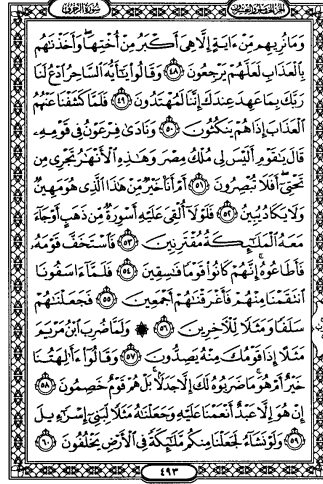 سورة الزخرف
الجزء الخامس والعشرون
وَمَا نُرِيهِم مِّنْ ءَايَةٍ إِلَّا هِيَ أَكْبَرُ مِنْ أُخْتِهَا وَأَخَذْنَٰهُم
بِالْعَذَابِ لَعَلَّهُمْ يَرْجِعُونَ ٤٨ وَقَالُوا۟ يَٰٓأَيُّهَ السَّاحِرُ ادْعُ لَنَا
رَبَّكَ بِمَا عَهِدَ عِندَكَ إِنَّنَا لَمُهْتَدُونَ ٤٩ فَلَمَّا كَشَفْنَا عَنْهُمُ
الْعَذَابَ إِذَا هُمْ يَنكُثُونَ ٥٠ وَنَادَىٰ فِرْعَوْنُ فِي قَوْمِهِۦ
قَالَ يَٰقَوْمِ أَلَيْسَ لِي مُلْكُ مِصْرَ وَهَٰذِهِ الْأَنْهَٰرُ تَجْرِي مِن
تَحْتِيٓ أَفَلَا تُبْصِرُونَ ٥١ أَمْ أَنَا۠ خَيْرٌ مِّنْ هَٰذَا الَّذِي هُوَ مَهِينٌ
وَلَا يَكَادُ يُبِينُ ٥٢ فَلَوْلَآ أُلْقِيَ عَلَيْهِ أَسْوِرَةٌ مِّن ذَهَبٍ أَوْ جَآءَ
مَعَهُ الْمَلَٰٓئِكَةُ مُقْتَرِنِينَ ٥٣ فَاسْتَخَفَّ قَوْمَهُۥ
فَأَطَاعُوهُ إِنَّهُمْ كَانُوا۟ قَوْمًا فَٰسِقِينَ ٥٤ فَلَمَّآ ءَاسَفُونَا
انتَقَمْنَا مِنْهُمْ فَأَغْرَقْنَٰهُمْ أَجْمَعِينَ ٥٥ فَجَعَلْنَٰهُمْ
سَلَفًا وَمَثَلًا لِّلْءَاخِرِينَ ٥٦ ۞ وَلَمَّا ضُرِبَ ابْنُ مَرْيَمَ
مَثَلًا إِذَا قَوْمُكَ مِنْهُ يَصِدُّونَ ٥٧ وَقَالُوٓا۟ ءَأَٰلِهَتُنَا
خَيْرٌ أَمْ هُوَ مَا ضَرَبُوهُ لَكَ إِلَّا جَدَلًۢا بَلْ هُمْ قَوْمٌ خَصِمُونَ ٥٨
إِنْ هُوَ إِلَّا عَبْدٌ أَنْعَمْنَا عَلَيْهِ وَجَعَلْنَٰهُ مَثَلًا لِّبَنِيٓ إِسْرَٰٓءِيلَ
٥٩ وَلَوْ نَشَآءُ لَجَعَلْنَا مِنكُم مَّلَٰٓئِكَةً فِي الْأَرْضِ يَخْلُفُونَ ٦٠
٤٩٣